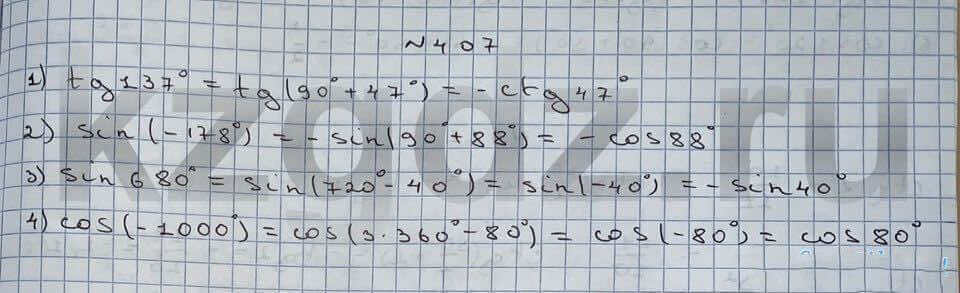 N 407
1) tg 137° = tg(90° + 47°) = - ctg 47°
2) sin(-178°) = - sin(90° + 88°) = - cos 88°
3) sin 680° = sin(720° - 40°) = sin(-40°) = - sin 40°
4) cos(-1000°) = cos(3·360° - 80°) = cos(-80°) = cos 80°
kzgdz.ru